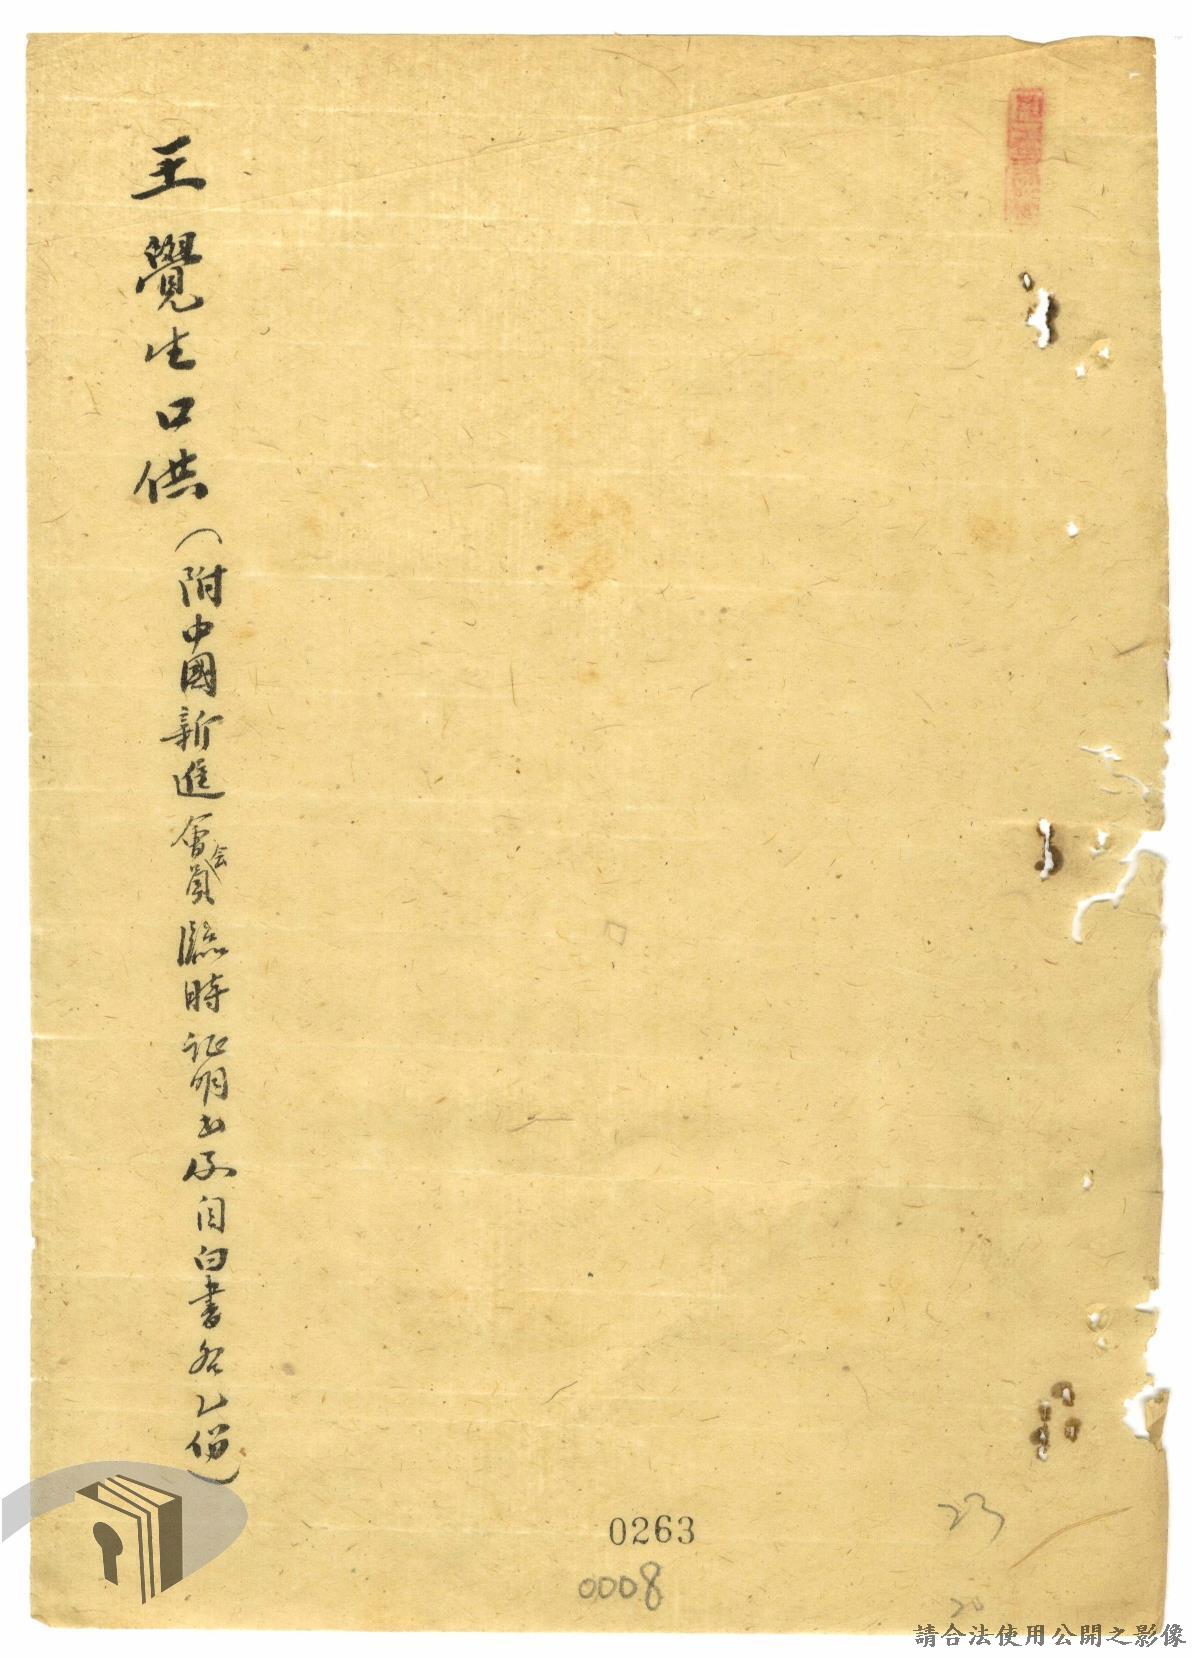 王覺生口供(附中國新進會会員臨時证明书及自白書各乙份)
0263
0008
23
20
請合法使用公開之影像